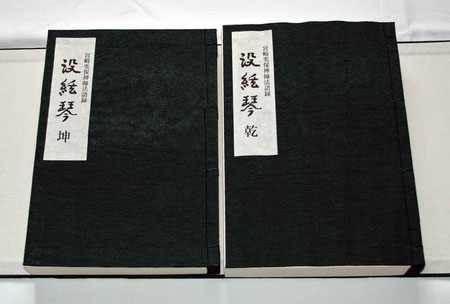 宮崎奕保禅師法語録
没絃琴 乾
宮崎奕保禅師法語録
没絃琴 坤